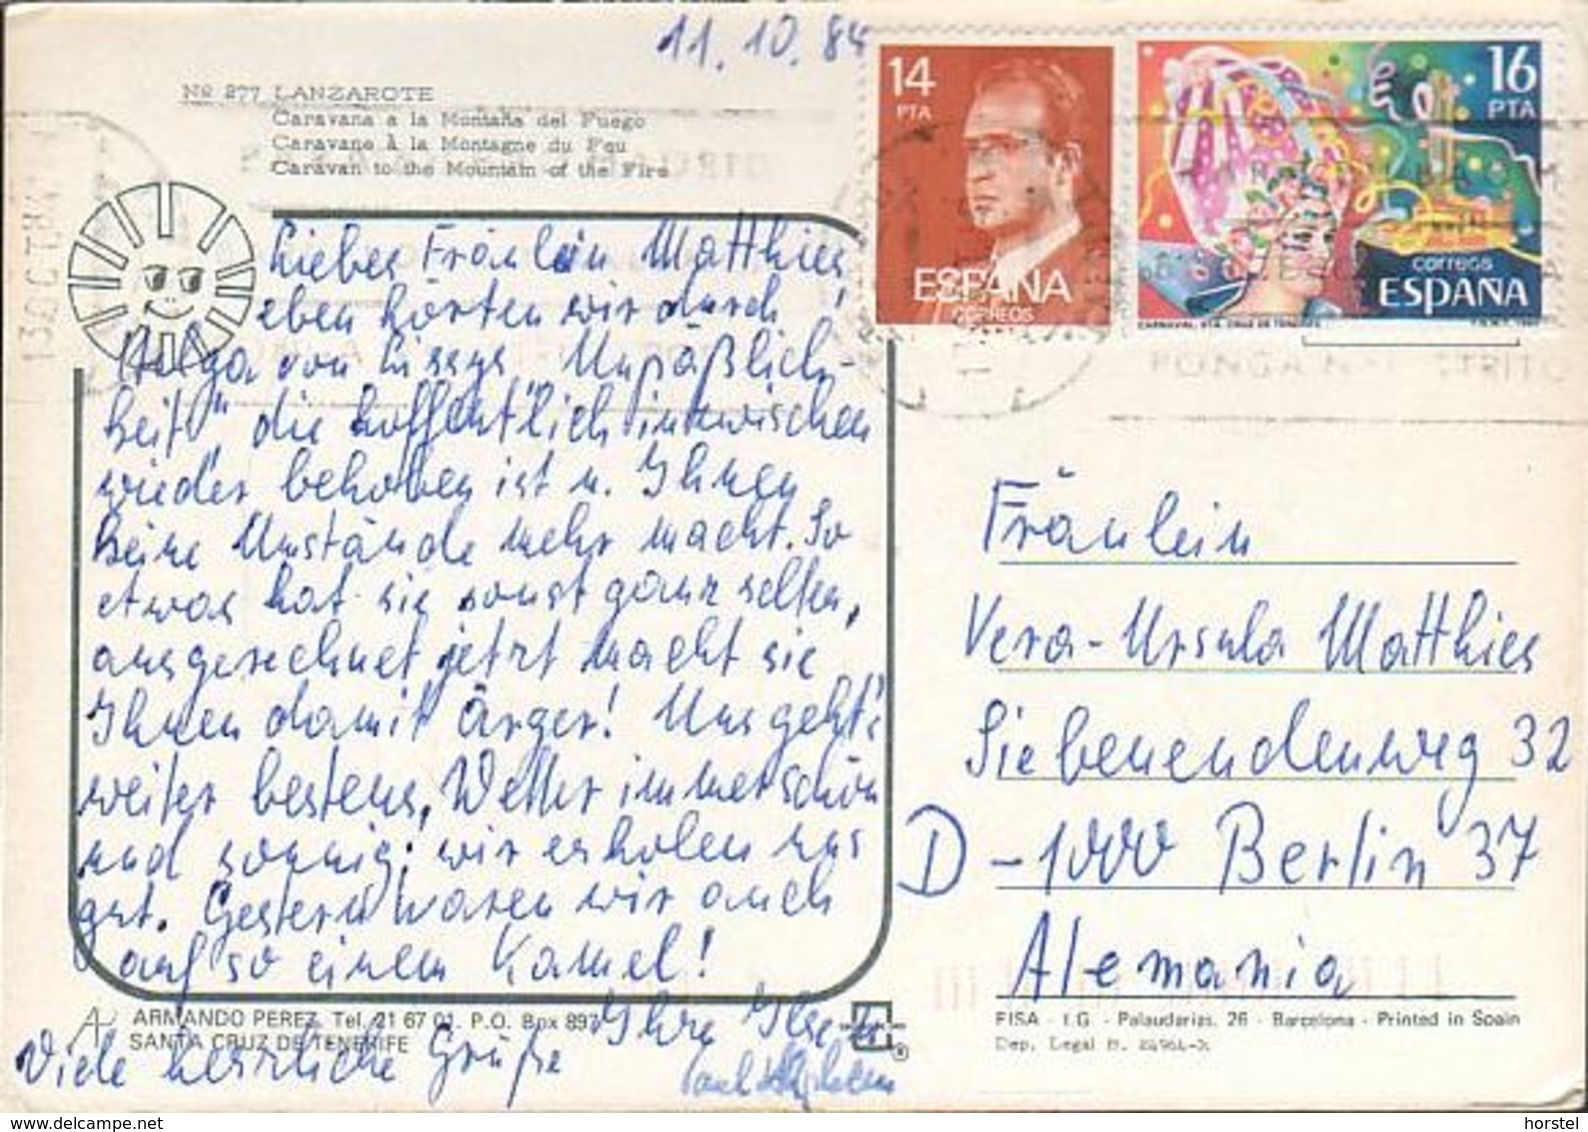 11. 10. 84
Nº 277 LANZAROTE
Caravana a la Montaña del Fuego
Caravane à la Montagne du Feu
Caravan to the Mountain of the Fire
14
PTA
ESPAÑA
CORREOS
16
PTA
CORREOS
ESPAÑA
CARNAVAL. STA. CRUZ DE TENERIFE
Liebes Fräulein Matthies,
eben hörten wir durch
Helga von Lissys "Unpäßlich-
keit", die hoffentlich inzwischen
wieder behoben ist u. Ihnen
keine Umstände mehr macht. So
etwas hat sie sonst ganz selten,
ausgerechnet jetzt macht sie
Ihnen damit Ärger! Uns geht's
weiter bestens, Wetter immer schön
und sonnig; wir erholen uns
gut. Gestern waren wir auch
auf so einem Kamel!
Viele herzliche Grüße
Ihre Ilse
Fräulein
Vera-Ursula Matthies
Siebenendenweg 32
D-1000 Berlin 37
Alemania
ARMANDO PEREZ. Tel. 21 67 01. P.O. Box 897
SANTA CRUZ DE TENERIFE
FISA - I.G. - Palaudarias, 26 - Barcelona - Printed in Spain
Dep. Legal B.
horstel